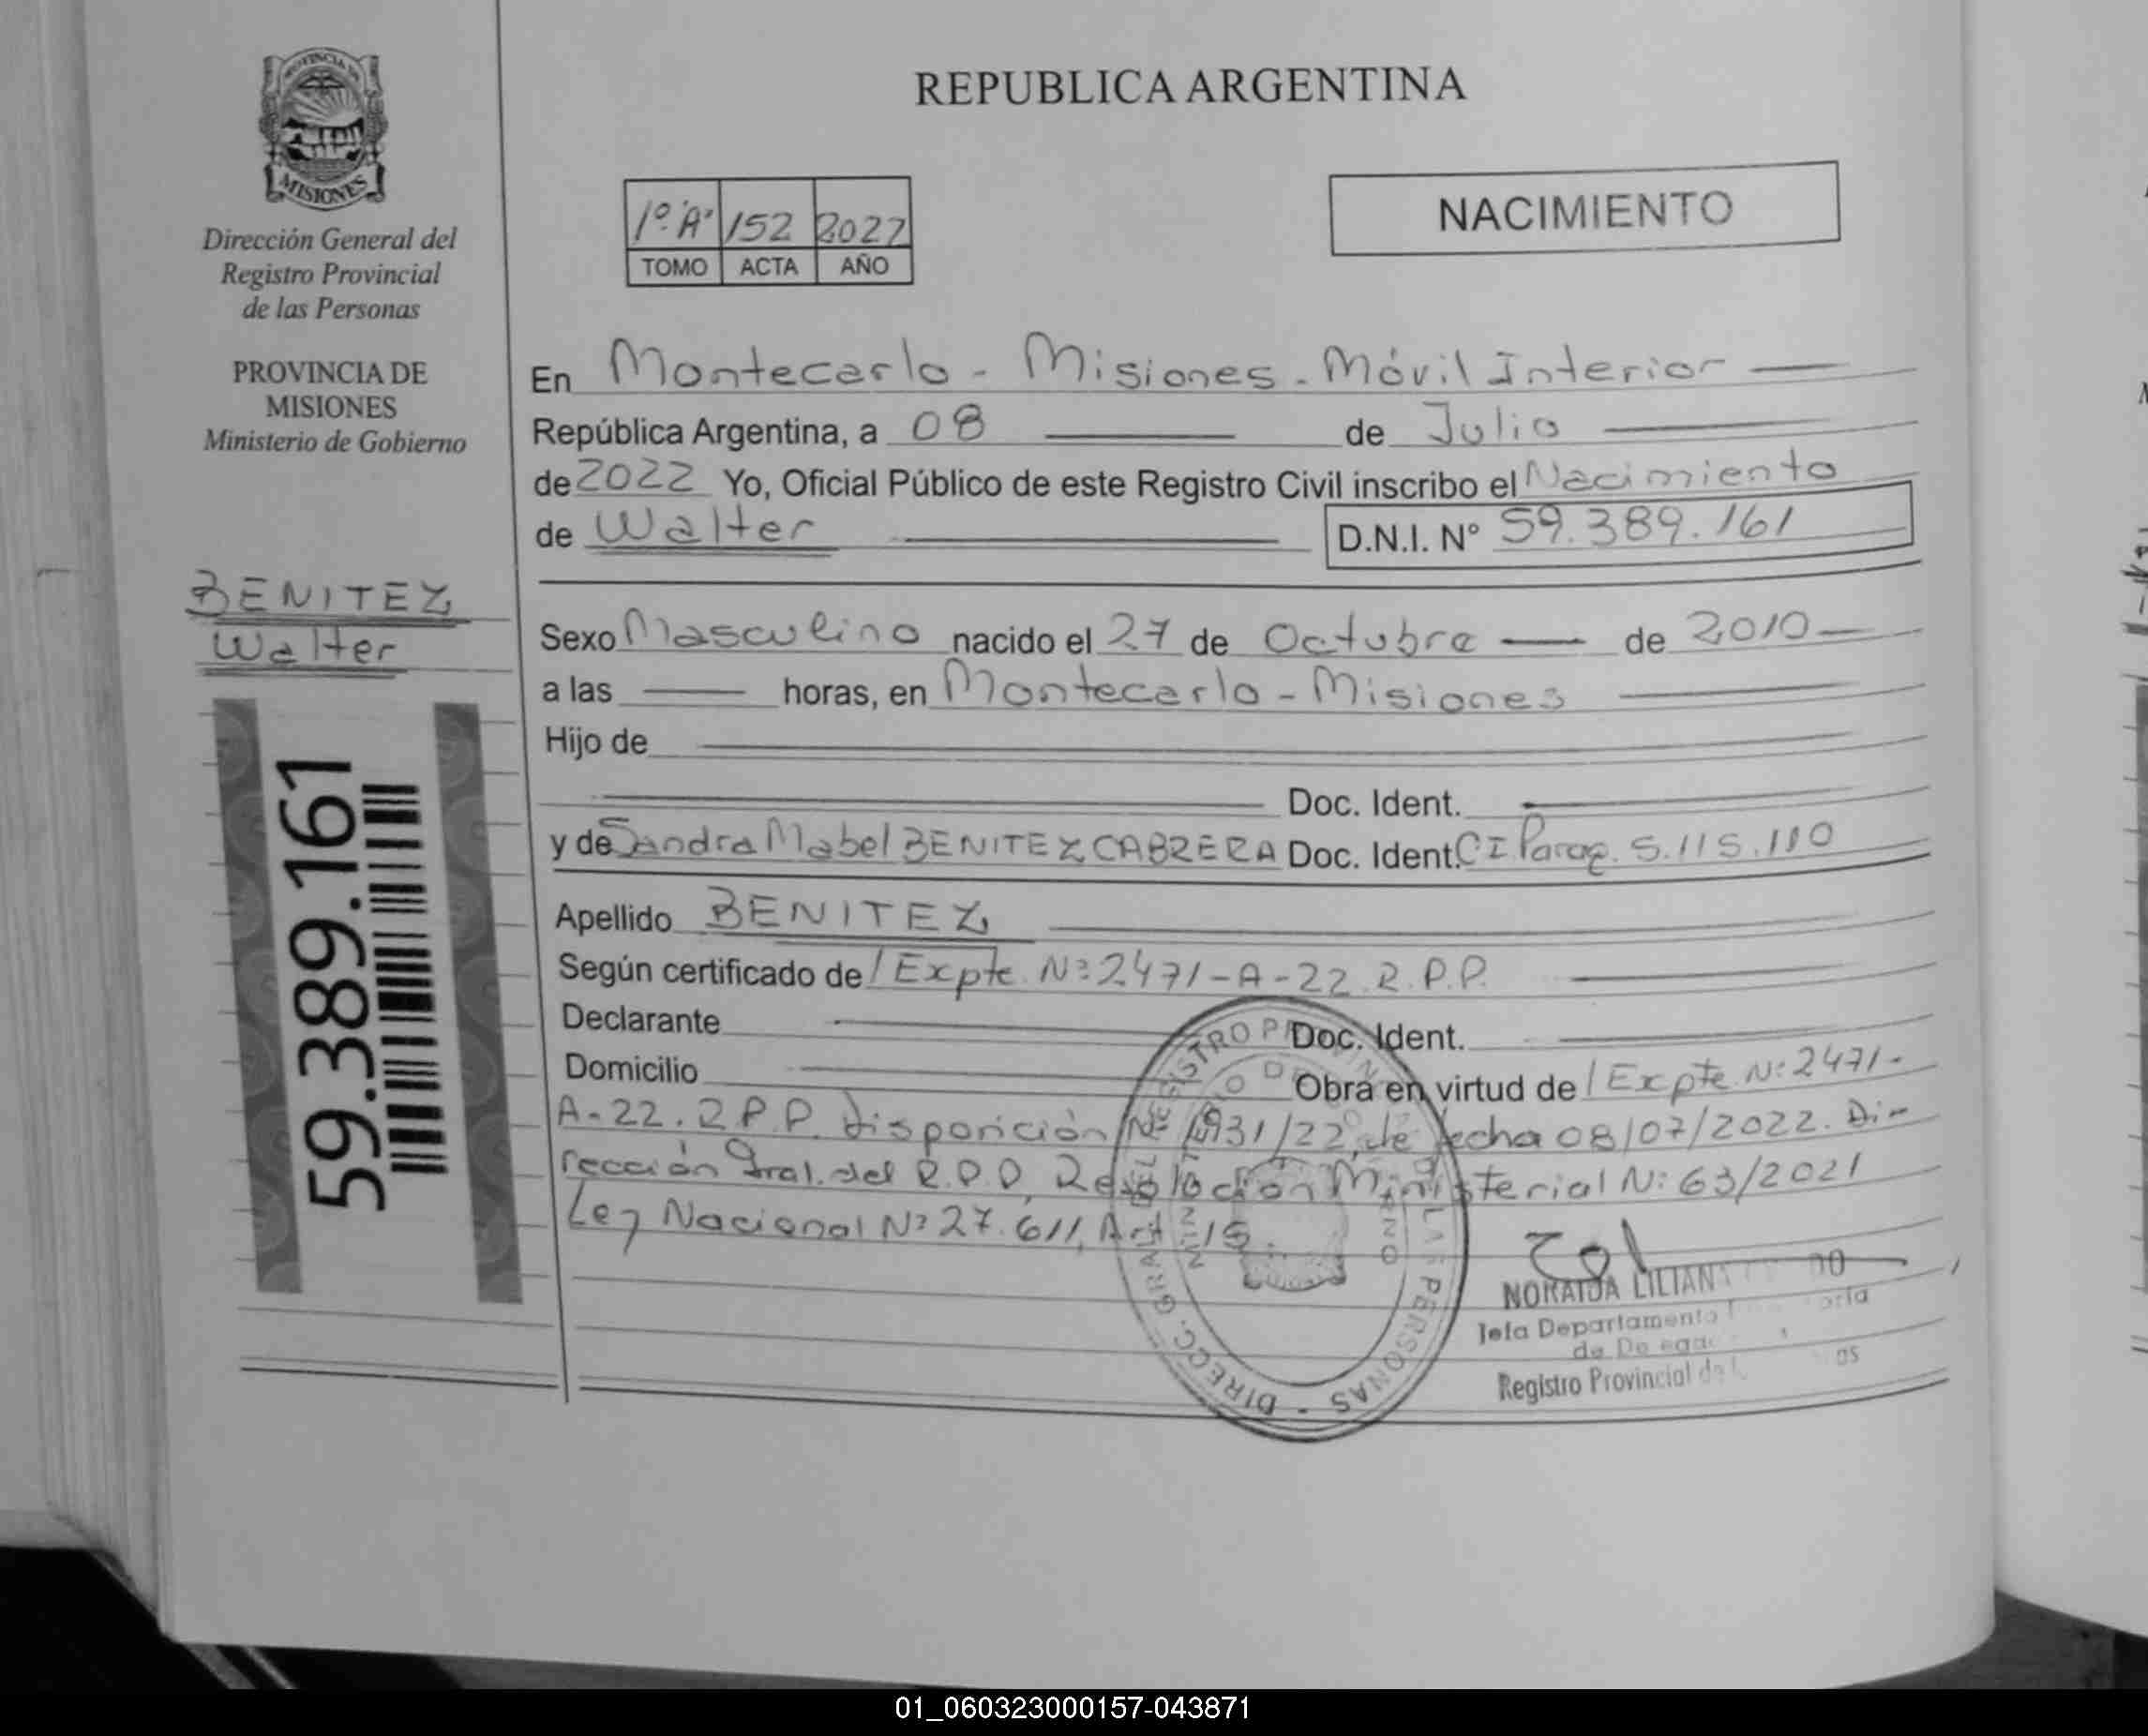 PROVINCIA DE
MISIONES
Dirección General del
Registro Provincial
de las Personas
PROVINCIA DE
MISIONES
Ministerio de Gobierno
BENITEZ
Walter
59.389.161
REPUBLICA ARGENTINA
1º "A" 152 2022
TOMO ACTA AÑO
NACIMIENTO
En Montecarlo - Misiones - Móvil Interior
República Argentina, a 08 de Julio
de 2022 Yo, Oficial Público de este Registro Civil inscribo el Nacimiento
de Walter D.N.I. Nº 59.389.161
Sexo Masculino nacido el 27 de Octubre de 2010
a las horas, en Montecarlo - Misiones
Hijo de
Doc. Ident.
y de Sandra Mabel BENITEZ CABRERA Doc. Ident. CI Parag. 5.115.110
Apellido BENITEZ
Según certificado de / Expte. Nº 2471-A-22. R.P.P.
Declarante Doc. Ident.
Domicilio Obra en virtud de / Expte Nº 2471-
A-22. R.P.P. Disposición Nº 1931/22, de fecha 08/07/2022. Di-
rección Gral. del R.P.P, Resolución Ministerial Nº 63/2021
Ley Nacional Nº 27.611, Art. 15.
DIRECC. GRAL. DEL REGISTRO PROVINCIAL LAS PERSONAS
NORAIDA LILIANA
Jefa Departamento
Registro Provincial de
01_060323000157-043871